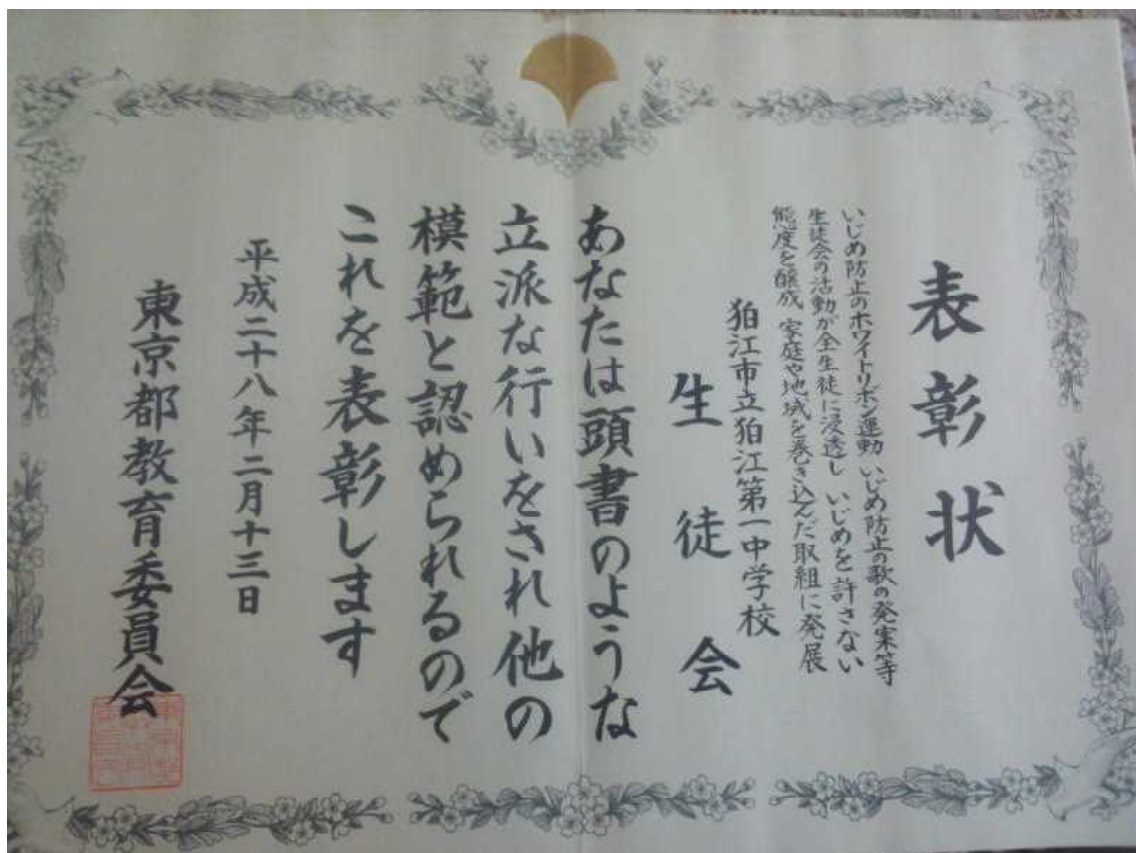 表彰状
いじめ防止のホワイトリボン運動 いじめ防止の歌の発案等
生徒会の活動が全生徒に浸透し いじめを許さない
態度を醸成 家庭や地域を巻き込んだ取組に発展
狛江市立狛江第一中学校
生徒会
あなたは頭書のような
立派な行いをされ他の
模範と認められるので
これを表彰します
平成二十八年二月十三日
東京都教育委員会